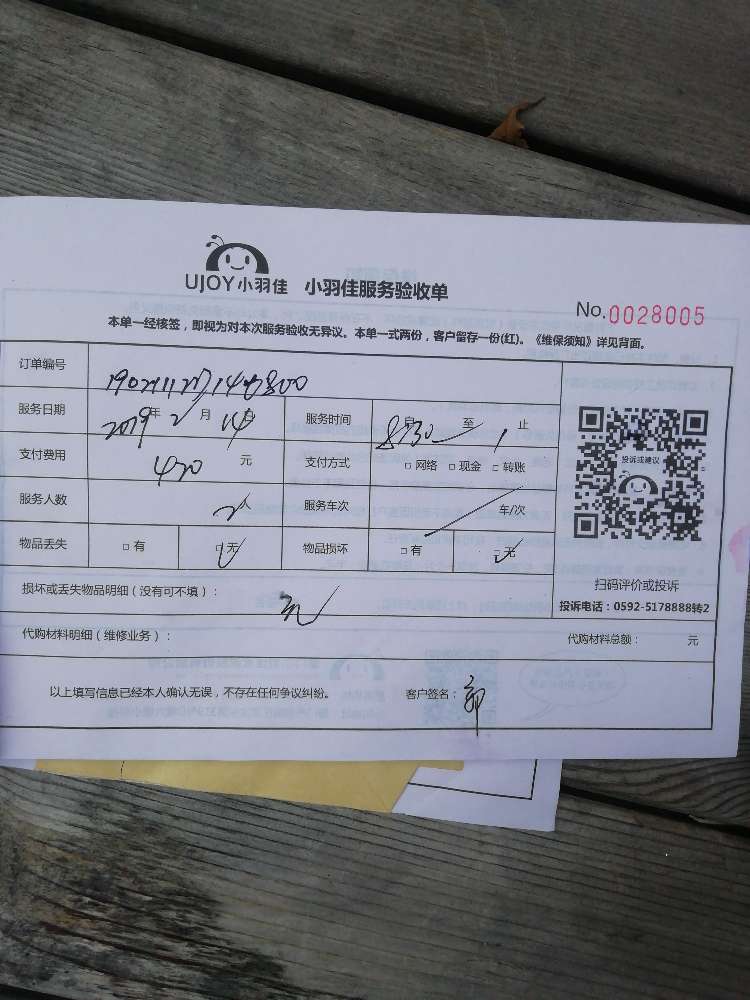 UJOY小羽佳 小羽佳服务验收单
No.0028005
本单一经核签，即视为对本次服务验收无异议。本单一式两份，客户留存一份(红)。《维保须知》详见背面。
订单编号
服务日期 2019年2月14日 服务时间 8:30 自 至 1 止
支付费用 420 元 支付方式 □网络 □现金 □转账
服务人数 2人 服务车次 / 车/次
物品丢失 □有 □无 物品损坏 □有 □无
投诉或建议
扫码评价或投诉
投诉电话：0592-5178888转2
损坏或丢失物品明细（没有可不填）： 无
代购材料明细（维修业务）： 代购材料总额： 元
以上填写信息已经本人确认无误，不存在任何争议纠纷。 客户签名：郭